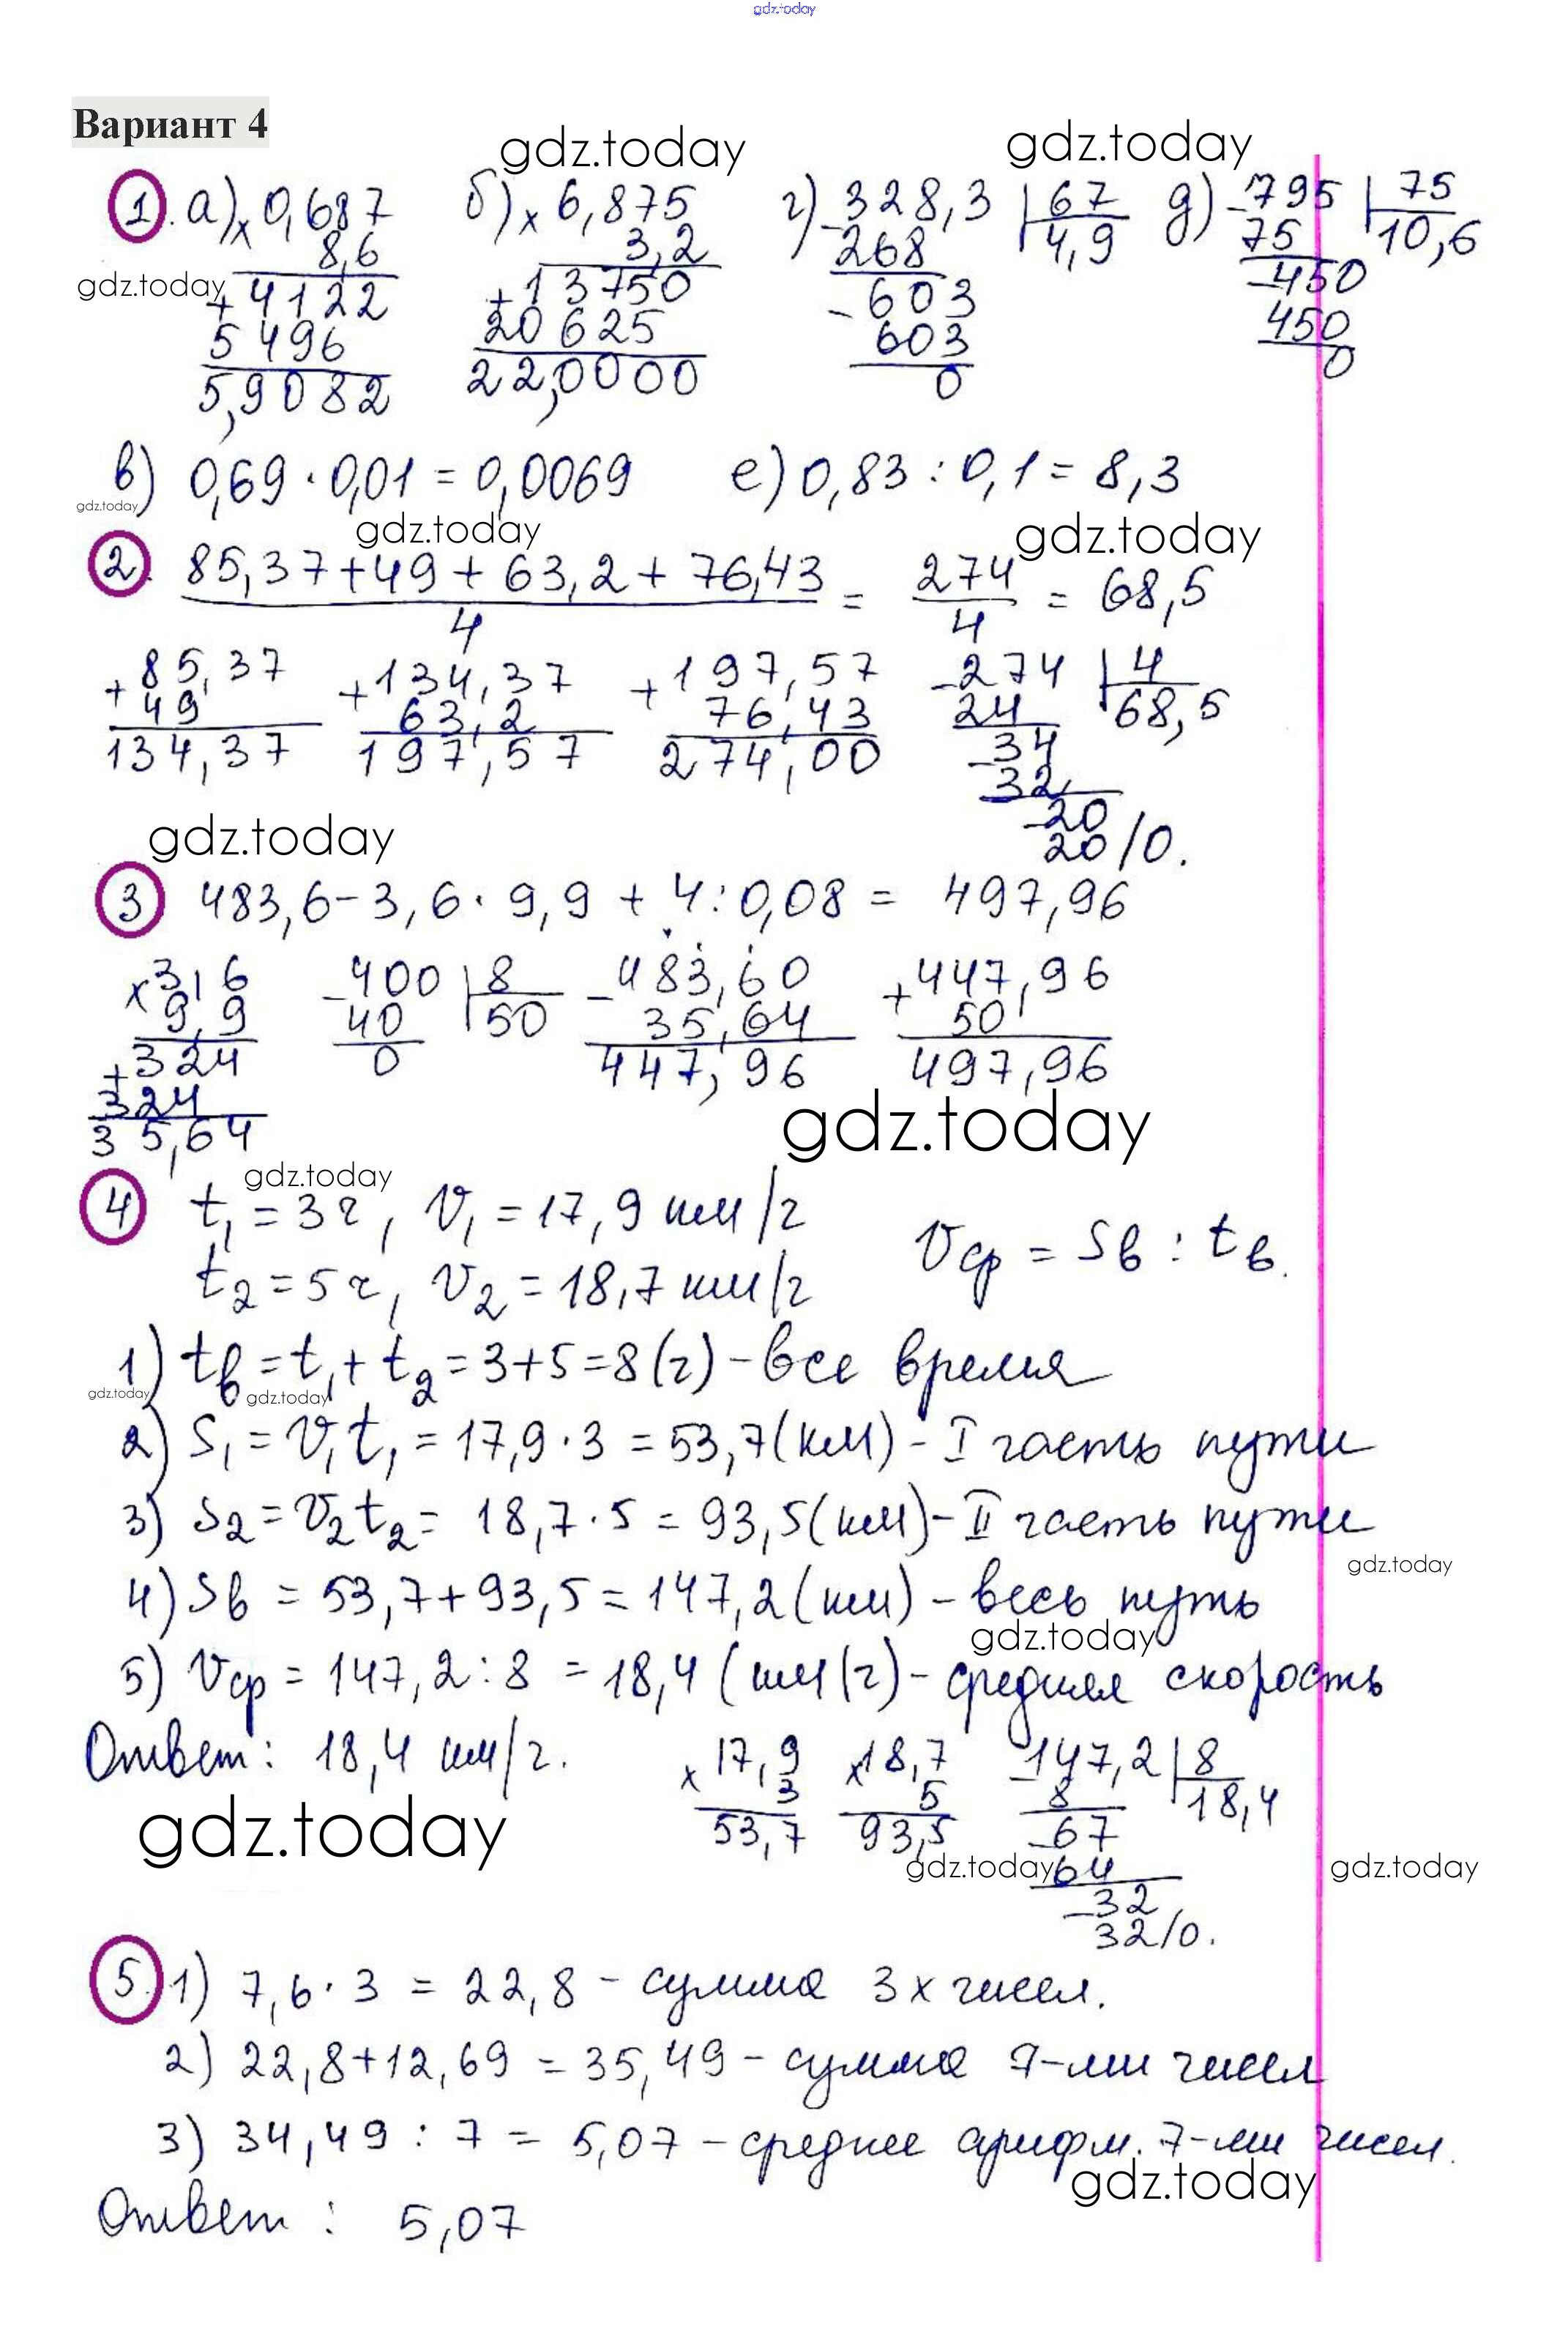 gdz.today
Вариант 4
gdz.today gdz.today
1. а) × 0,687 б) × 6,875 г) - 328,3 | 67 д) - 795 | 75
8,6 3,2 268 4,9 75 10,6
gdz.today + 4122 + 13750 - 603 - 450
5496 20625 603 450
5,9082 22,0000 0 0
в) 0,69 · 0,01 = 0,0069 е) 0,83 : 0,1 = 8,3
gdz.today gdz.today gdz.today
2. 85,37 + 49 + 63,2 + 76,43 / 4 = 274 / 4 = 68,5
+ 85,37 + 134,37 + 197,57 - 274 | 4
49 63,2 76,43 24 68,5
134,37 197,57 274,00 - 34
32
- 20
gdz.today 20/0.
3 483,6 - 3,6 · 9,9 + 4 : 0,08 = 497,96
× 3,6 - 400 | 8 - 483,60 + 447,96
9,9 40 50 35,64 50
+ 324 0 447,96 497,96
324 gdz.today
35,64
gdz.today
4 t1 = 3ч, v1 = 17,9 км/ч
vср = Sв : tв.
t2 = 5ч, v2 = 18,7 км/ч
1) tв = t1 + t2 = 3+5=8 (ч) - все время
gdz.today gdz.today
2) S1 = v1t1 = 17,9 · 3 = 53,7 (км) - I часть пути
3) S2 = v2t2 = 18,7 · 5 = 93,5 (км) - II часть пути
gdz.today
4) Sв = 53,7 + 93,5 = 147,2 (км) - весь путь
gdz.today
5) vср = 147,2 : 8 = 18,4 (км/ч) - средняя скорость
Ответ: 18,4 км/ч. × 17,9 × 18,7 - 147,2 | 8
3 5 8 18,4
gdz.today 53,7 93,5 - 67
gdz.today 64 gdz.today
- 32
32/0.
5. 1) 7,6 · 3 = 22,8 - сумма 3х чисел.
2) 22,8 + 12,69 = 35,49 - сумма 7-ми чисел
3) 34,49 : 7 = 5,07 - среднее арифм. 7-ми чисел.
gdz.today
Ответ : 5,07